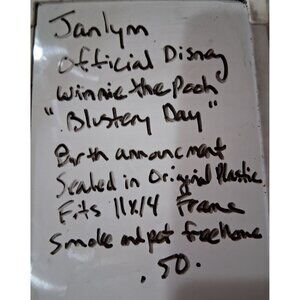 Janlynn
Official Disney
Winnie the Pooh
"Blustery Day"
Birth announcment
Sealed in Original Plastic
Fits 11x14 Frame
Smoke and pet free Home
.50.